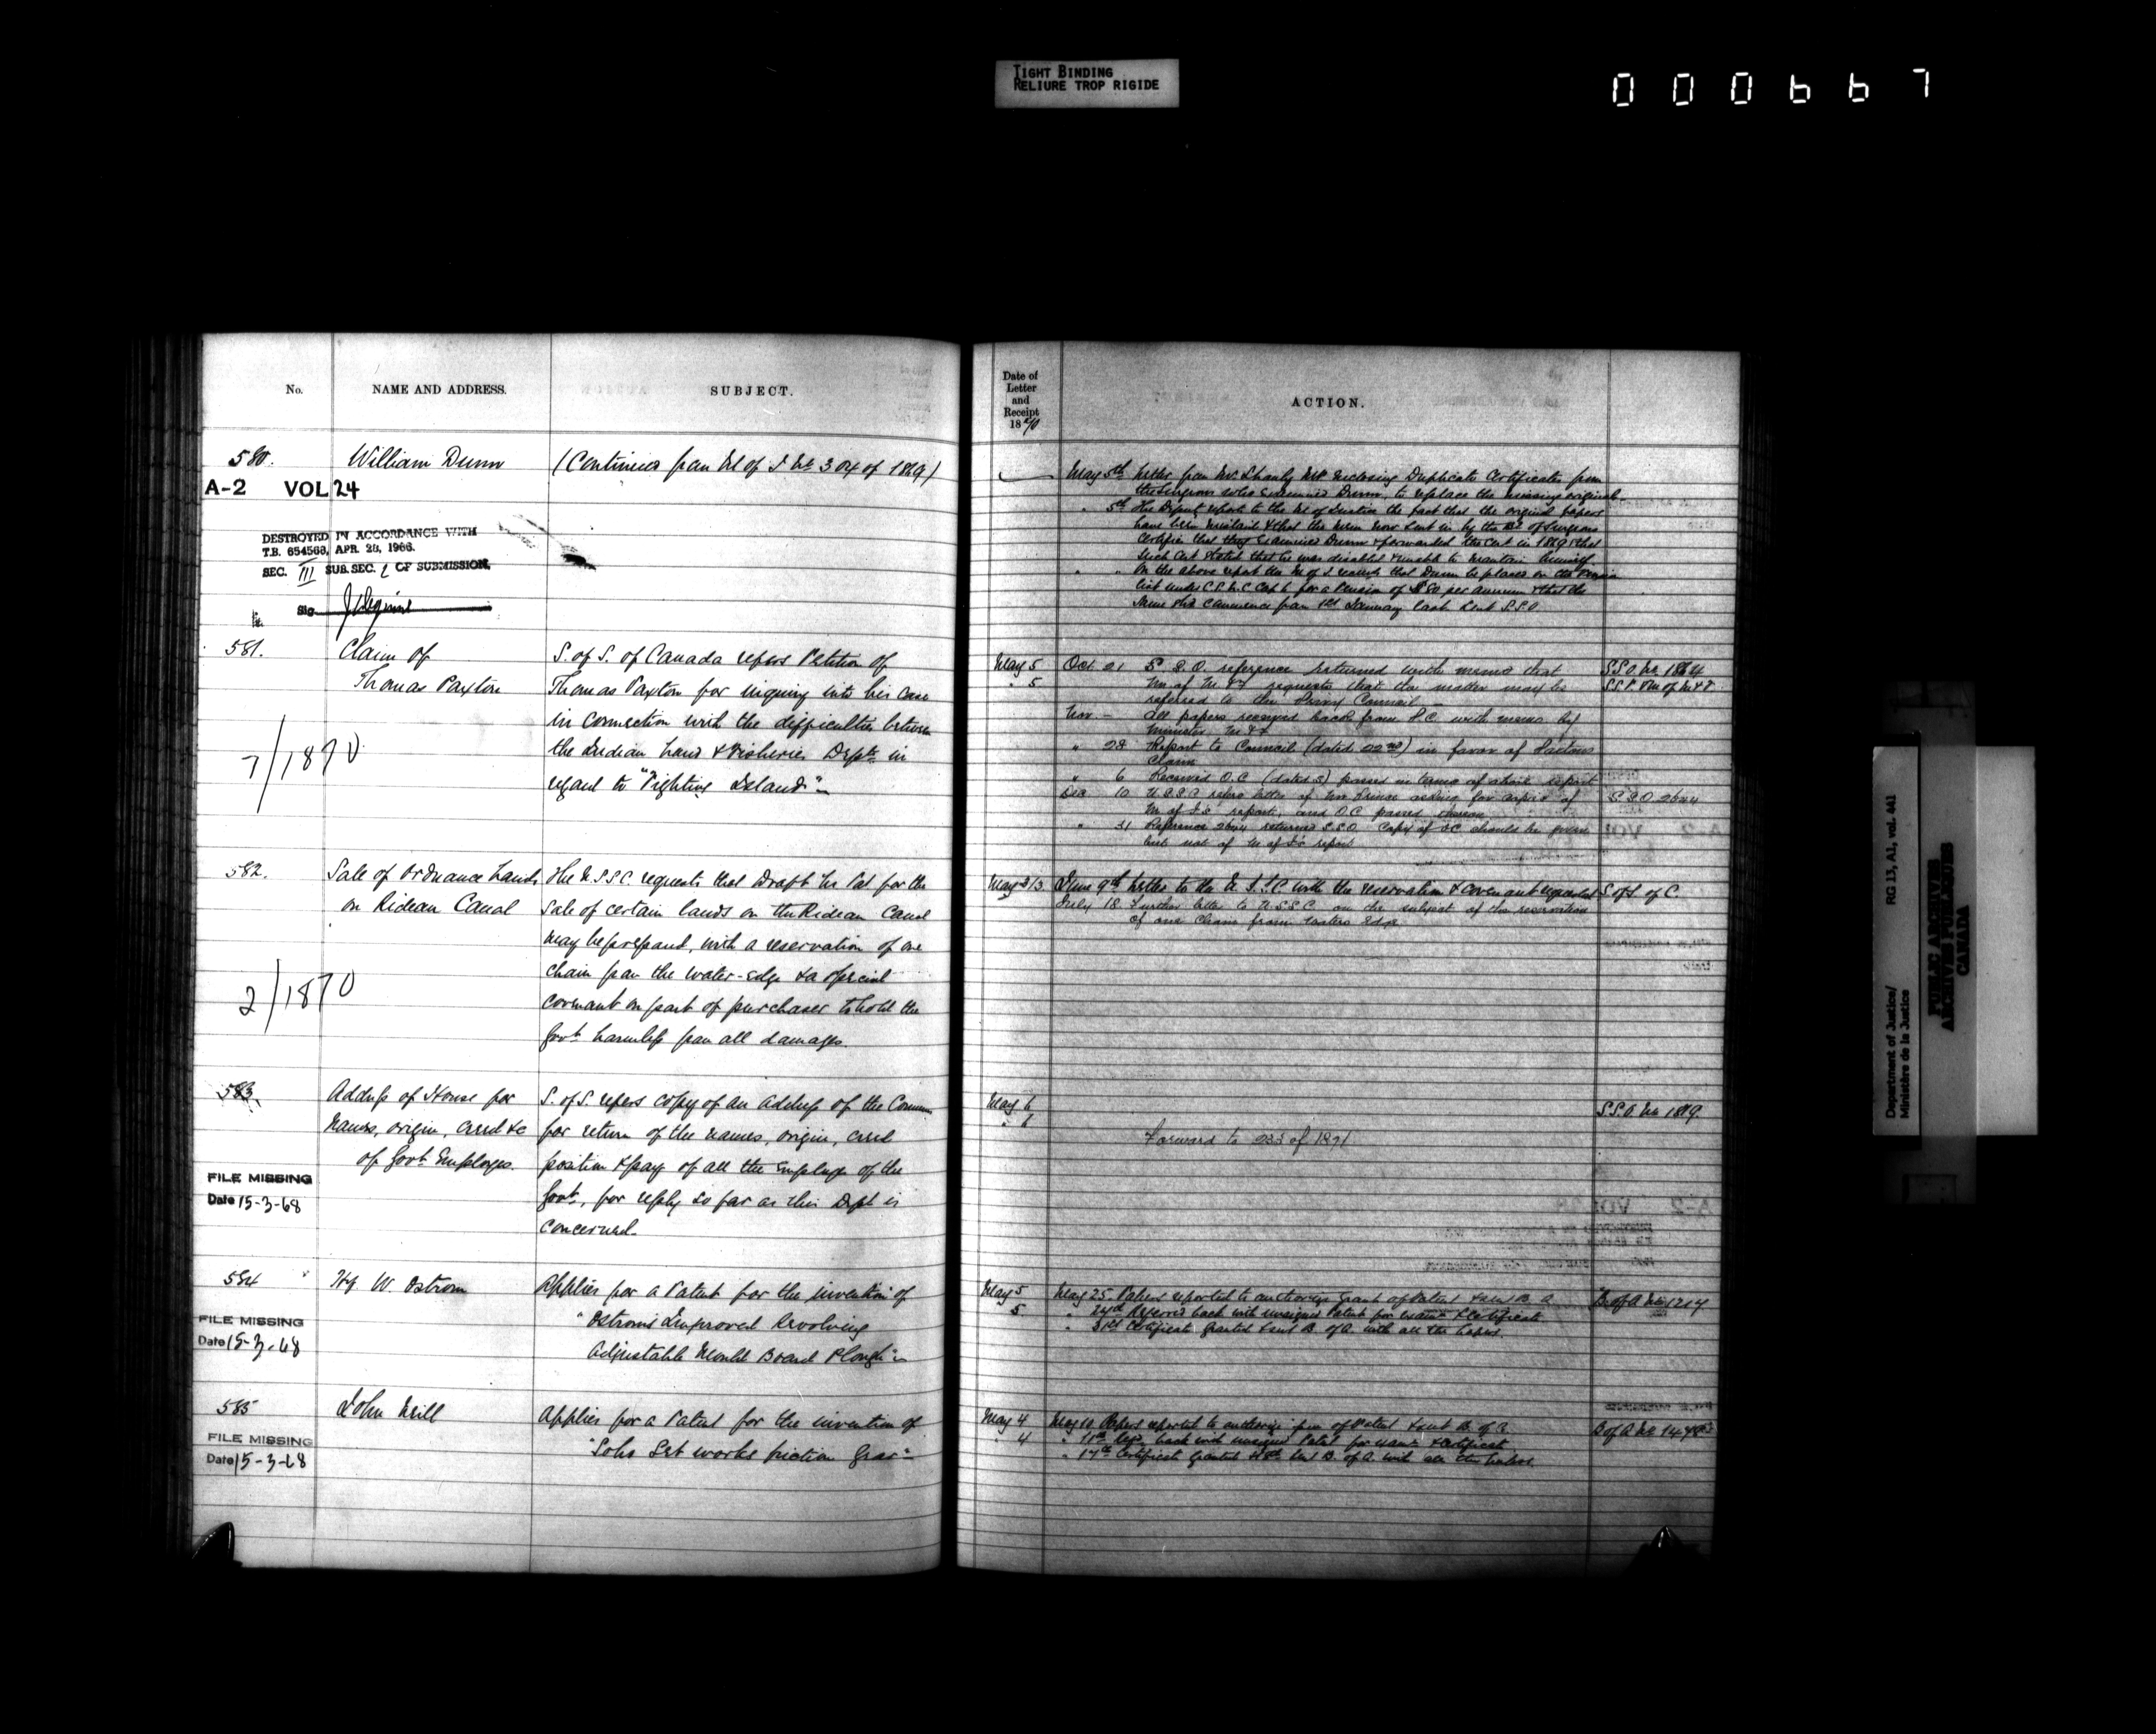 TIGHT BINDING
RELIURE TROP RIGIDE
000667
No.
NAME AND ADDRESS.
SUBJECT.
580.
William Dunn
(Continued from M of J No 304 of 1869)
A-2 VOL 24
DESTROYED IN ACCORDANCE WITH
T.B. 654568, APR. 28, 1966.
SEC. III SUB. SEC. OF SUBMISSION.
Sig
581.
Claim of
Thomas Paxton
S. of S. of Canada refers Petition of
Thomas Paxton for inquiry into his case
in connection with the difficulties between
the Indian Land & Fisheries Depts. in
regard to "Fighting Island"
7/1870
582.
Sale of Ordnance Lands
on Rideau Canal
The U.S.S.C. requests that Draft Lr Pat for the
Sale of certain lands on the Rideau Canal
may be prepared, with a reservation of one
chain from the water-edge & a special
covenant on part of purchaser to hold the
Govt. harmless from all damages.
2/1870
583.
Address of House for
Names, origin, creed &c
of Govt. Employes.
S. of S. refers copy of an address of the Commons
for return of the names, origin, creed
position & pay of all the Employes of the
Govt., for reply so far as this Dept is
concerned.
FILE MISSING
Date 15-3-68
584
Hy W. Ostrom
Applies for a Patent for the invention of
"Ostrom's Improved Revolving
Adjustable Mould Board Plough"
FILE MISSING
Date 15-3-68
585
John Neill
Applies for a Patent for the invention of
Set works friction Gear"
FILE MISSING
Date 15-3-68
Date of
Letter
and
Receipt
1870
ACTION.
May 5th Letter from Mr. Shanly MP enclosing Duplicate Certificates from
the Surgeons who examined Dunn, to replace the missing original
" 5th The Deputy reports to the M of Justice the fact that the original papers
have been mislaid & that the now sent in by the of Surgeons
certifies that they examined Dunn & forwarded the Cert in 1869 & that
such Cert stated that he was disabled & unable to maintain himself.
" " On the above report the M of J that Dunn be placed on the Pension
list under for a Pension of $80 per annum & that the
same shd commence from 1st January last. Sent S.S.O.
May 5
" 5
Oct. 21 S.S.O. reference returned with memo that
M. of M. & F requests that the matter may be
referred to the Privy Council
Nov. — All papers received back from P.C. with memo by
Minister M & F
" 22 Report to Council (dated 22nd) in favor of Paxton's
Claim
" 6 Received O.C. (dated 5) passed in terms of above report
Dec 10 U.S.S.C refers letter of Mr asking for copies of
M of J's report and O.C. passed thereon
" 31 Reference 2644 returned S.S.O. Copy of O.C. should be given
but not of M of J's report
S.S.O. No. 1864
S.S.O. 2644
June 9th Letter to the U.S.S.C with the reservation & covenant requested
July 18 Further letter to U.S.S.C. on the subject of the reservation
of one chain from waters Edge
S of S. of C.
May 6
" 6
Forward to 233 of 1871
S.S.O. No. 1869.
May 5
5
May 25. Papers reported to authorize Grant of Patent & sent B. A
Referred back with unsigned Patent for & Certificate
" 31st Certificate granted & sent B. of A. with all the papers.
B. of A No 1217
May 4
" 4
May 10 Papers reported to authorize of Patent & sent B. of A.
back with unsigned Patent for & Certificate
" 17th Certificate granted & sent B. of A. with all the papers.
Department of Justice/
Ministère de la Justice
RG 13, A1, vol. 441
PUBLIC ARCHIVES
ARCHIVES PUBLIQUES
CANADA